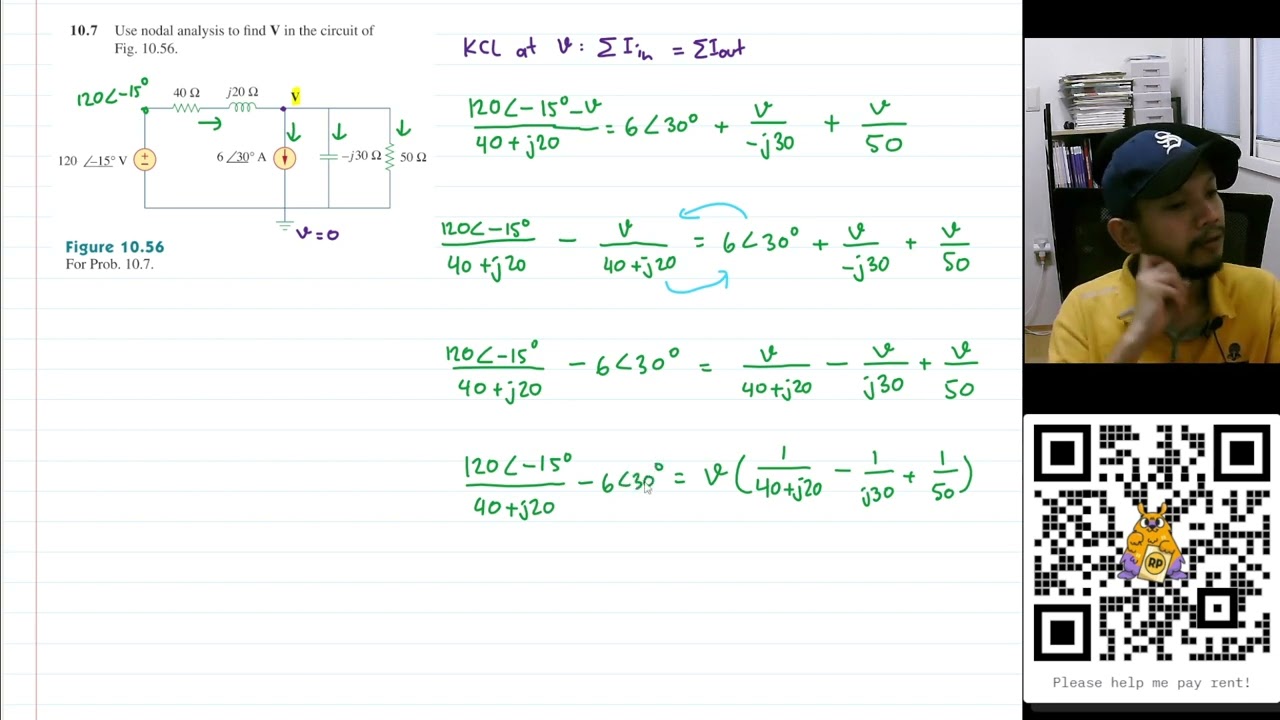 10.7 Use nodal analysis to find V in the circuit of
Fig. 10.56.
120∠-15°
40 Ω
j20 Ω
V
120 ∠-15° V
+
−
6 ∠30° A
-j30 Ω
50 Ω
v=0
Figure 10.56
For Prob. 10.7.
KCL at v: ΣIin = ΣIout
(120∠-15° - v)/(40+j20) = 6∠30° + v/(-j30) + v/50
120∠-15°/(40+j20) - v/(40+j20) = 6∠30° + v/(-j30) + v/50
120∠-15°/(40+j20) - 6∠30° = v/(40+j20) - v/(j30) + v/50
120∠-15°/(40+j20) - 6∠30° = v(1/(40+j20) - 1/(j30) + 1/50)
RP
Please help me pay rent!